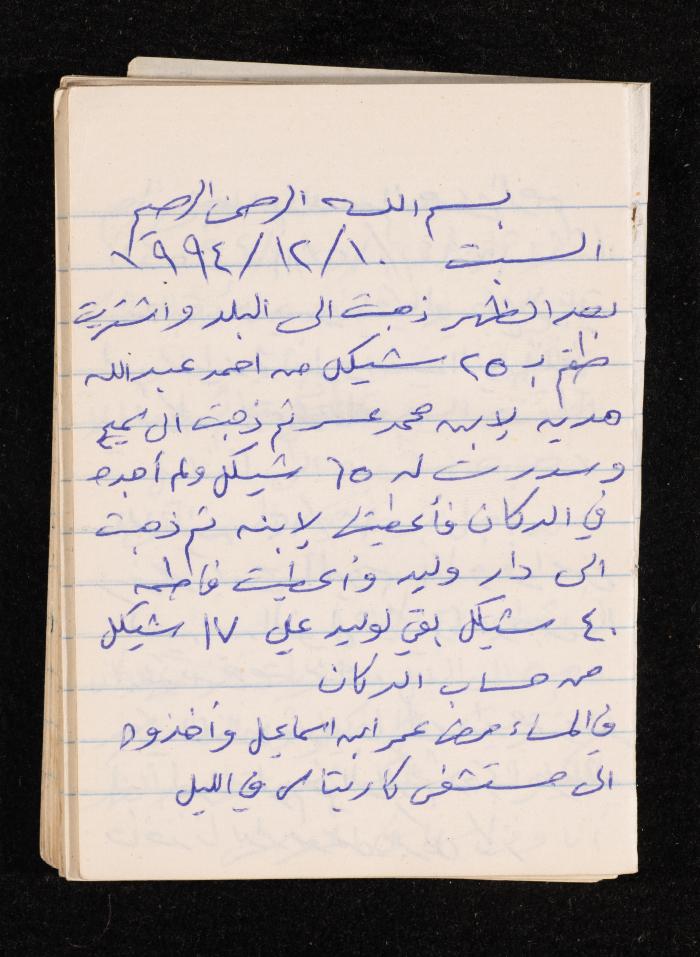 بسم الله الرحمن الرحيم
السبت ١٩٩٤/١٢/١٠
بعد الظهر ذهبت الى البلد واشتريت
طقم ب ٢٥ شيكل من احمد عبدالله
هديه لابنه محمد ثم ذهبت الى سميح
وسددت له ٦٥ شيكل ولم أجده
في الدكان فأعطيتها لابنه ثم ذهبت
الى دار وليد وأعطيت فاطمه
٤٠ شيكل بقي لوليد علي ١٧ شيكل
من حساب الدكان
في المساء مرض عمر ابن اسماعيل وأخذوه
الى مستشفى كاريتاس في الليل